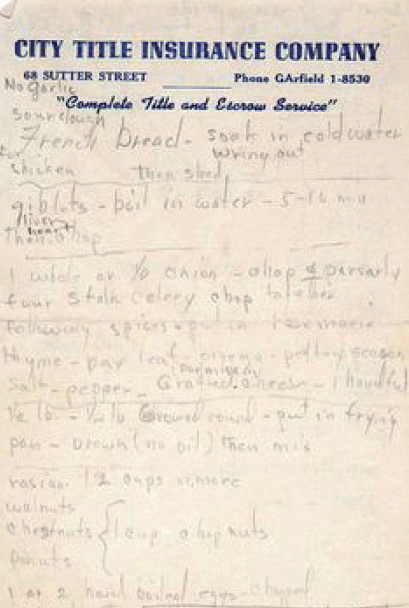 CITY TITLE INSURANCE COMPANY
68 SUTTER STREET Phone GArfield 1-8530
"Complete Title and Escrow Service"
No garlic
sourdough
French Bread - soak in cold water
wring out
for chicken then shed
giblets - boil in water - 5-10 min
liver
heart
then chop
1 whole or 1/2 onion - chop & parsely
four stalk celery chop together
following spices - put in rosemarie
thyme - bay leaf oregno - poltry season
parmigian
Salt - pepper - Grated cheese - 1 handful
1/2 lb. Ground round - put in frying
pan - brown (no oil) then mix
rasians 1 2 cups or more
walnuts
chestnuts 1 cup chop nuts
pinuts
1 or 2 hard boiled eggs - chopped